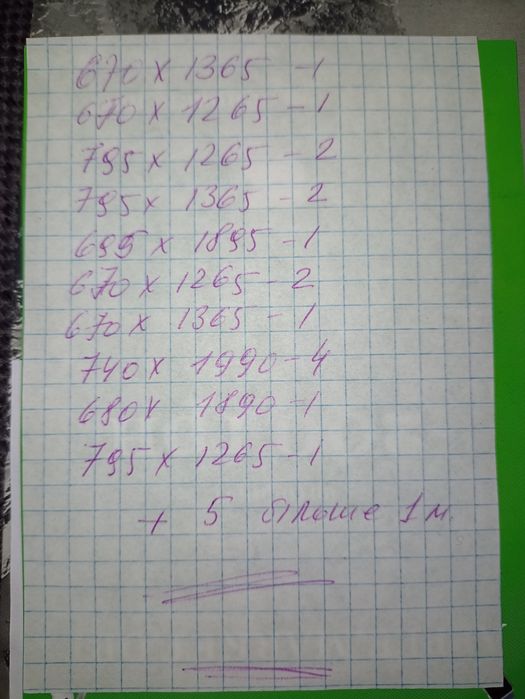 670 x 1365 - 1
670 x 1265 - 1
795 x 1265 - 2
795 x 1365 - 2
695 x 1895 - 1
670 x 1265 - 2
670 x 1365 - 1
740 x 1990 - 4
680 x 1890 - 1
795 x 1265 - 1
+ 5 більше 1 м.